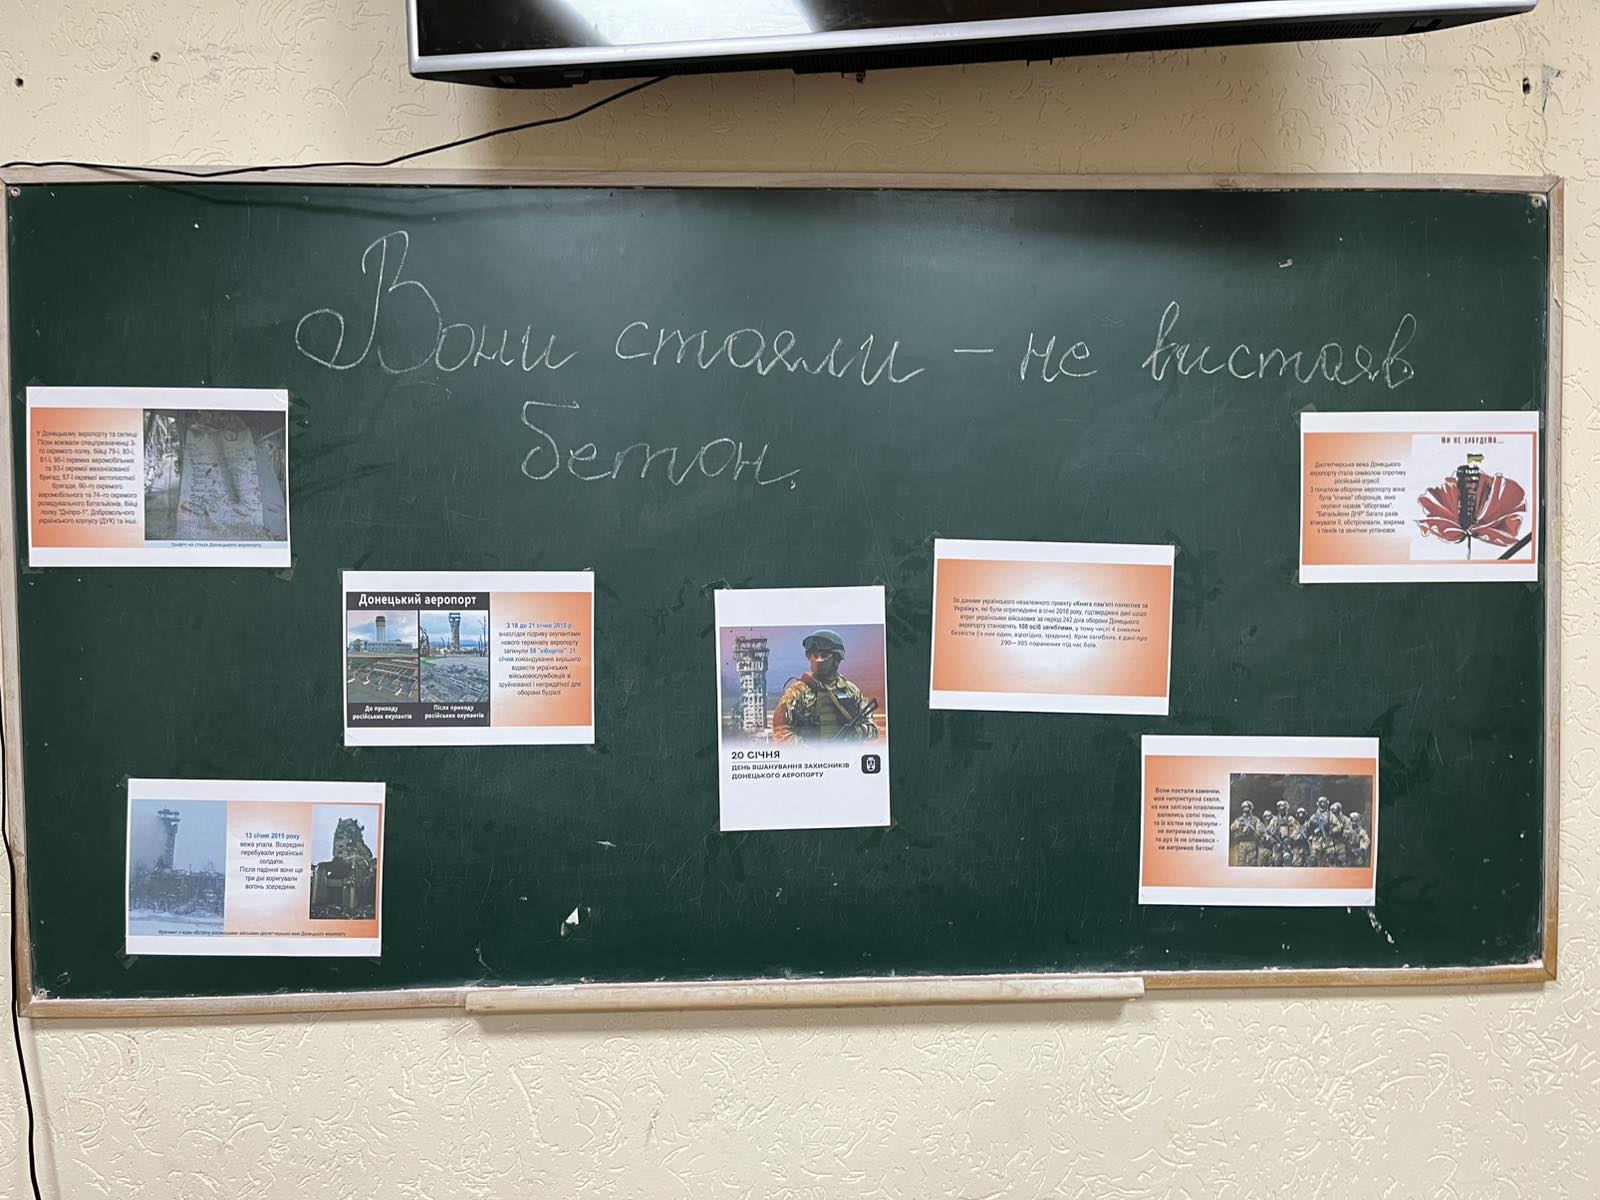 Вони стояли – не вистояв
бетон.
У Донецькому аеропорту та селищі
Піски воювали спецпризначенці 3-
го окремого полку, бійці 79-ї, 80-ї,
81-ї, 95-ї окремих аеромобільних
та 93-ї окремої механізованої
бригад, 57-ї окремої мотопіхотної
бригади, 90–го окремого
аеромобільного та 74–го окремого
розвідувального батальйонів, бійці
полку "Дніпро-1", Добровольчого
українського корпусу (ДУК) та інші.
Графіті на стінах Донецького аеропорту
Донецький аеропорт
До приходу
російських окупантів
Після приходу
російських окупантів
З 18 до 21 січня 2015 р.
внаслідок підриву окупантами
нового терміналу аеропорту
загинули 58 "кіборгів". 21
січня командування вирішило
відвести українських
військовослужбовців зі
зруйнованої і непридатної для
оборони будівлі.
13 січня 2015 року
вежа упала. Всередині
перебували українські
солдати.
Після падіння вони ще
три дні коригували
вогонь зсередини.
Фрагмент з відео обстрілу російськими військами диспетчерської вежі Донецького аеропорту
20 СІЧНЯ
ДЕНЬ ВШАНУВАННЯ ЗАХИСНИКІВ
ДОНЕЦЬКОГО АЕРОПОРТУ
За даними українського незалежного проекту «Книга пам'яті полеглих за
Україну», які були оприлюднені в січні 2018 року, підтверджені дані щодо
втрат українських військових за період 242 днів оборони Донецького
аеропорту становлять 100 осіб загиблими, у тому числі 4 зниклих
безвісти (із них один, вірогідно, зрадник). Крім загиблих, є дані про
290— 305 поранених під час боїв.
МИ НЕ ЗАБУДЕМО...
Диспетчерська вежа Донецького
аеропорту стала символом спротиву
російській агресії.
З початком оборони аеропорту вона
була "очима" оборонців, яких
окупант назвав "кіборгами".
"Батальйони ДНР" багато разів
атакували її, обстрілювали, зокрема
з танків та зенітних установок.
Вони постали каменем,
мов неприступна скеля,
на них залізом плавленим
валились сотні тонн,
та їх кістки не тріснули -
не витримала стеля,
та дух їх не зламався -
не витримав бетон!